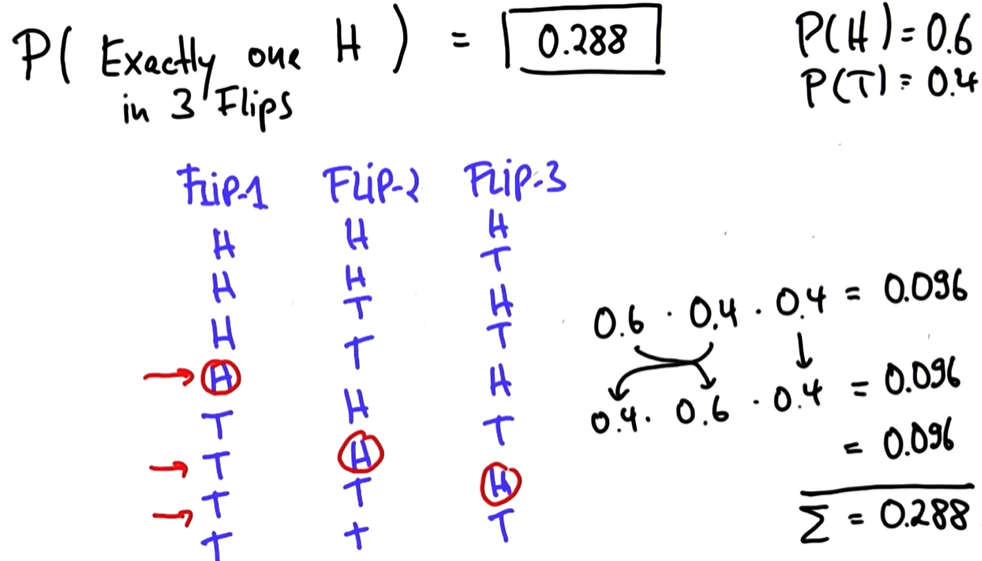 P( Exactly one H ) = 0.288
in 3 Flips
P(H) = 0.6
P(T) = 0.4
FLIP-1 FLIP-2 FLIP-3
H H H
H H T
H T H
H T T
T H H
T H T
T T H
T T T
0.6 · 0.4 · 0.4 = 0.096
0.4 · 0.6 · 0.4 = 0.096
= 0.096
Σ = 0.288